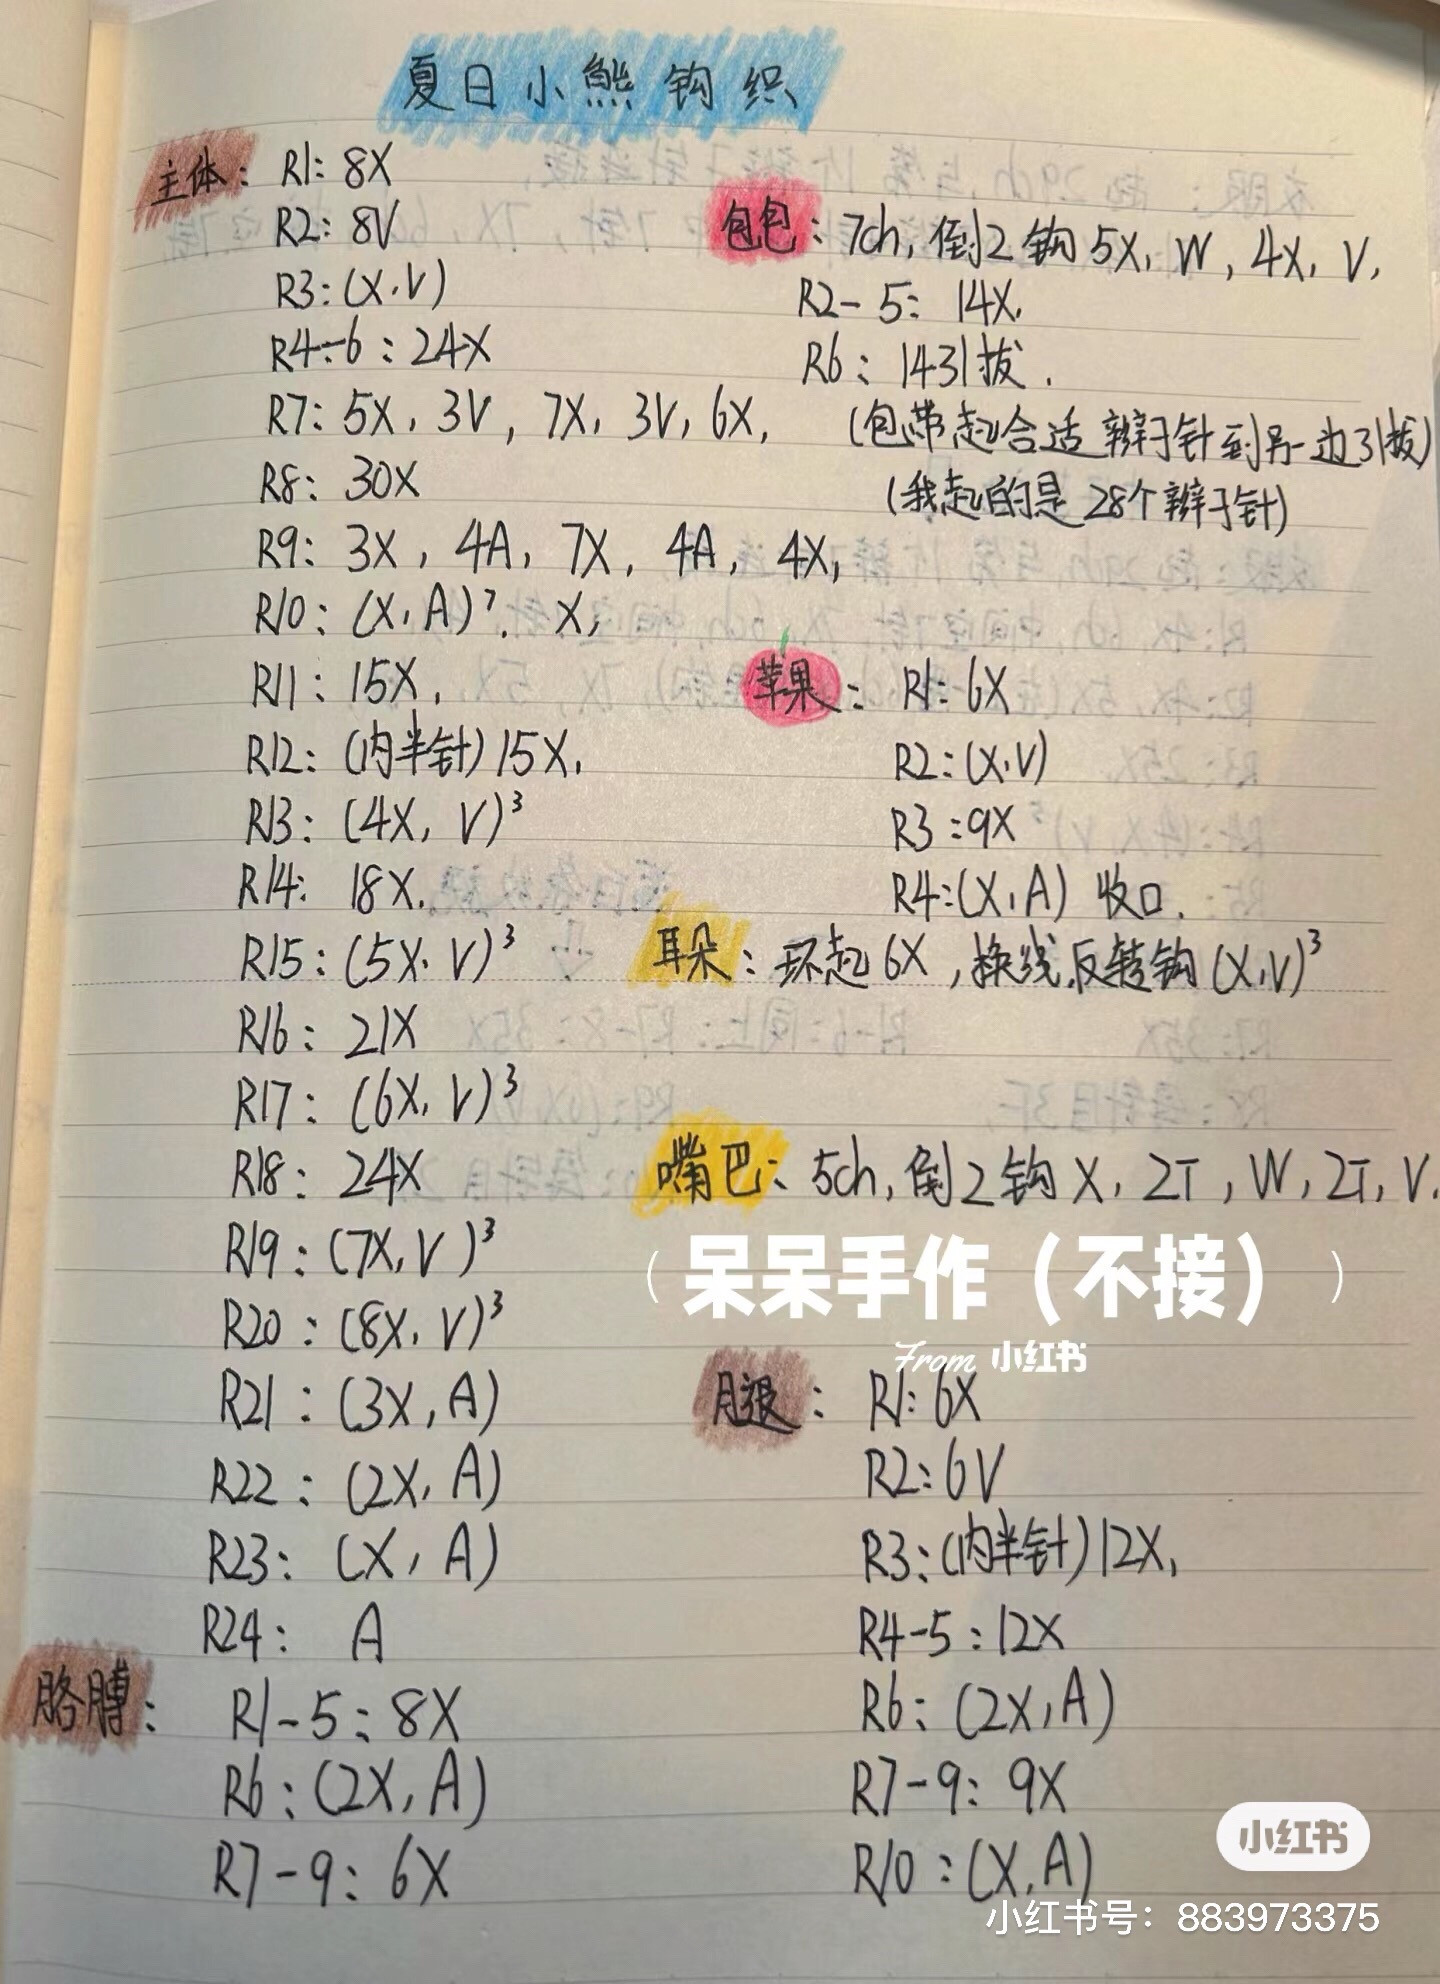 夏日小熊钩织
主体: R1: 8X
R2: 8V
R3: (X.V)
R4-6: 24X
R7: 5X, 3V, 7X, 3V, 6X,
R8: 30X
R9: 3X, 4A, 7X, 4A, 4X,
R10: (X,A)⁷, X,
R11: 15X,
R12: (内半针) 15X,
R13: (4X, V)³
R14: 18X.
R15: (5X, V)³
R16: 21X
R17: (6X, V)³
R18: 24X
R19: (7X, V)³
R20: (8X, V)³
R21: (3X, A)
R22: (2X, A)
R23: (X, A)
R24: A
胳膊: R1-5: 8X
R6: (2X, A)
R7-9: 6X
包包: 7ch, 倒2钩5X, W, 4X, V,
R2-5: 14X,
R6: 14引拔.
(包带起合适辫子针到另一边引拔)
(我起的是28个辫子针)
苹果: R1: 6X
R2: (X.V)
R3: 9X
R4: (X,A) 收口.
耳朵: 环起6X, 换线,反转钩(X,V)³
嘴巴: 5ch, 倒2钩X, 2T, W, 2T, V.
(呆呆手作(不接))
From 小红书
腿: R1: 6X
R2: 6V
R3: (内半针) 12X,
R4-5: 12X
R6: (2X,A)
R7-9: 9X
R10: (X,A)
小红书
小红书号: 883973375